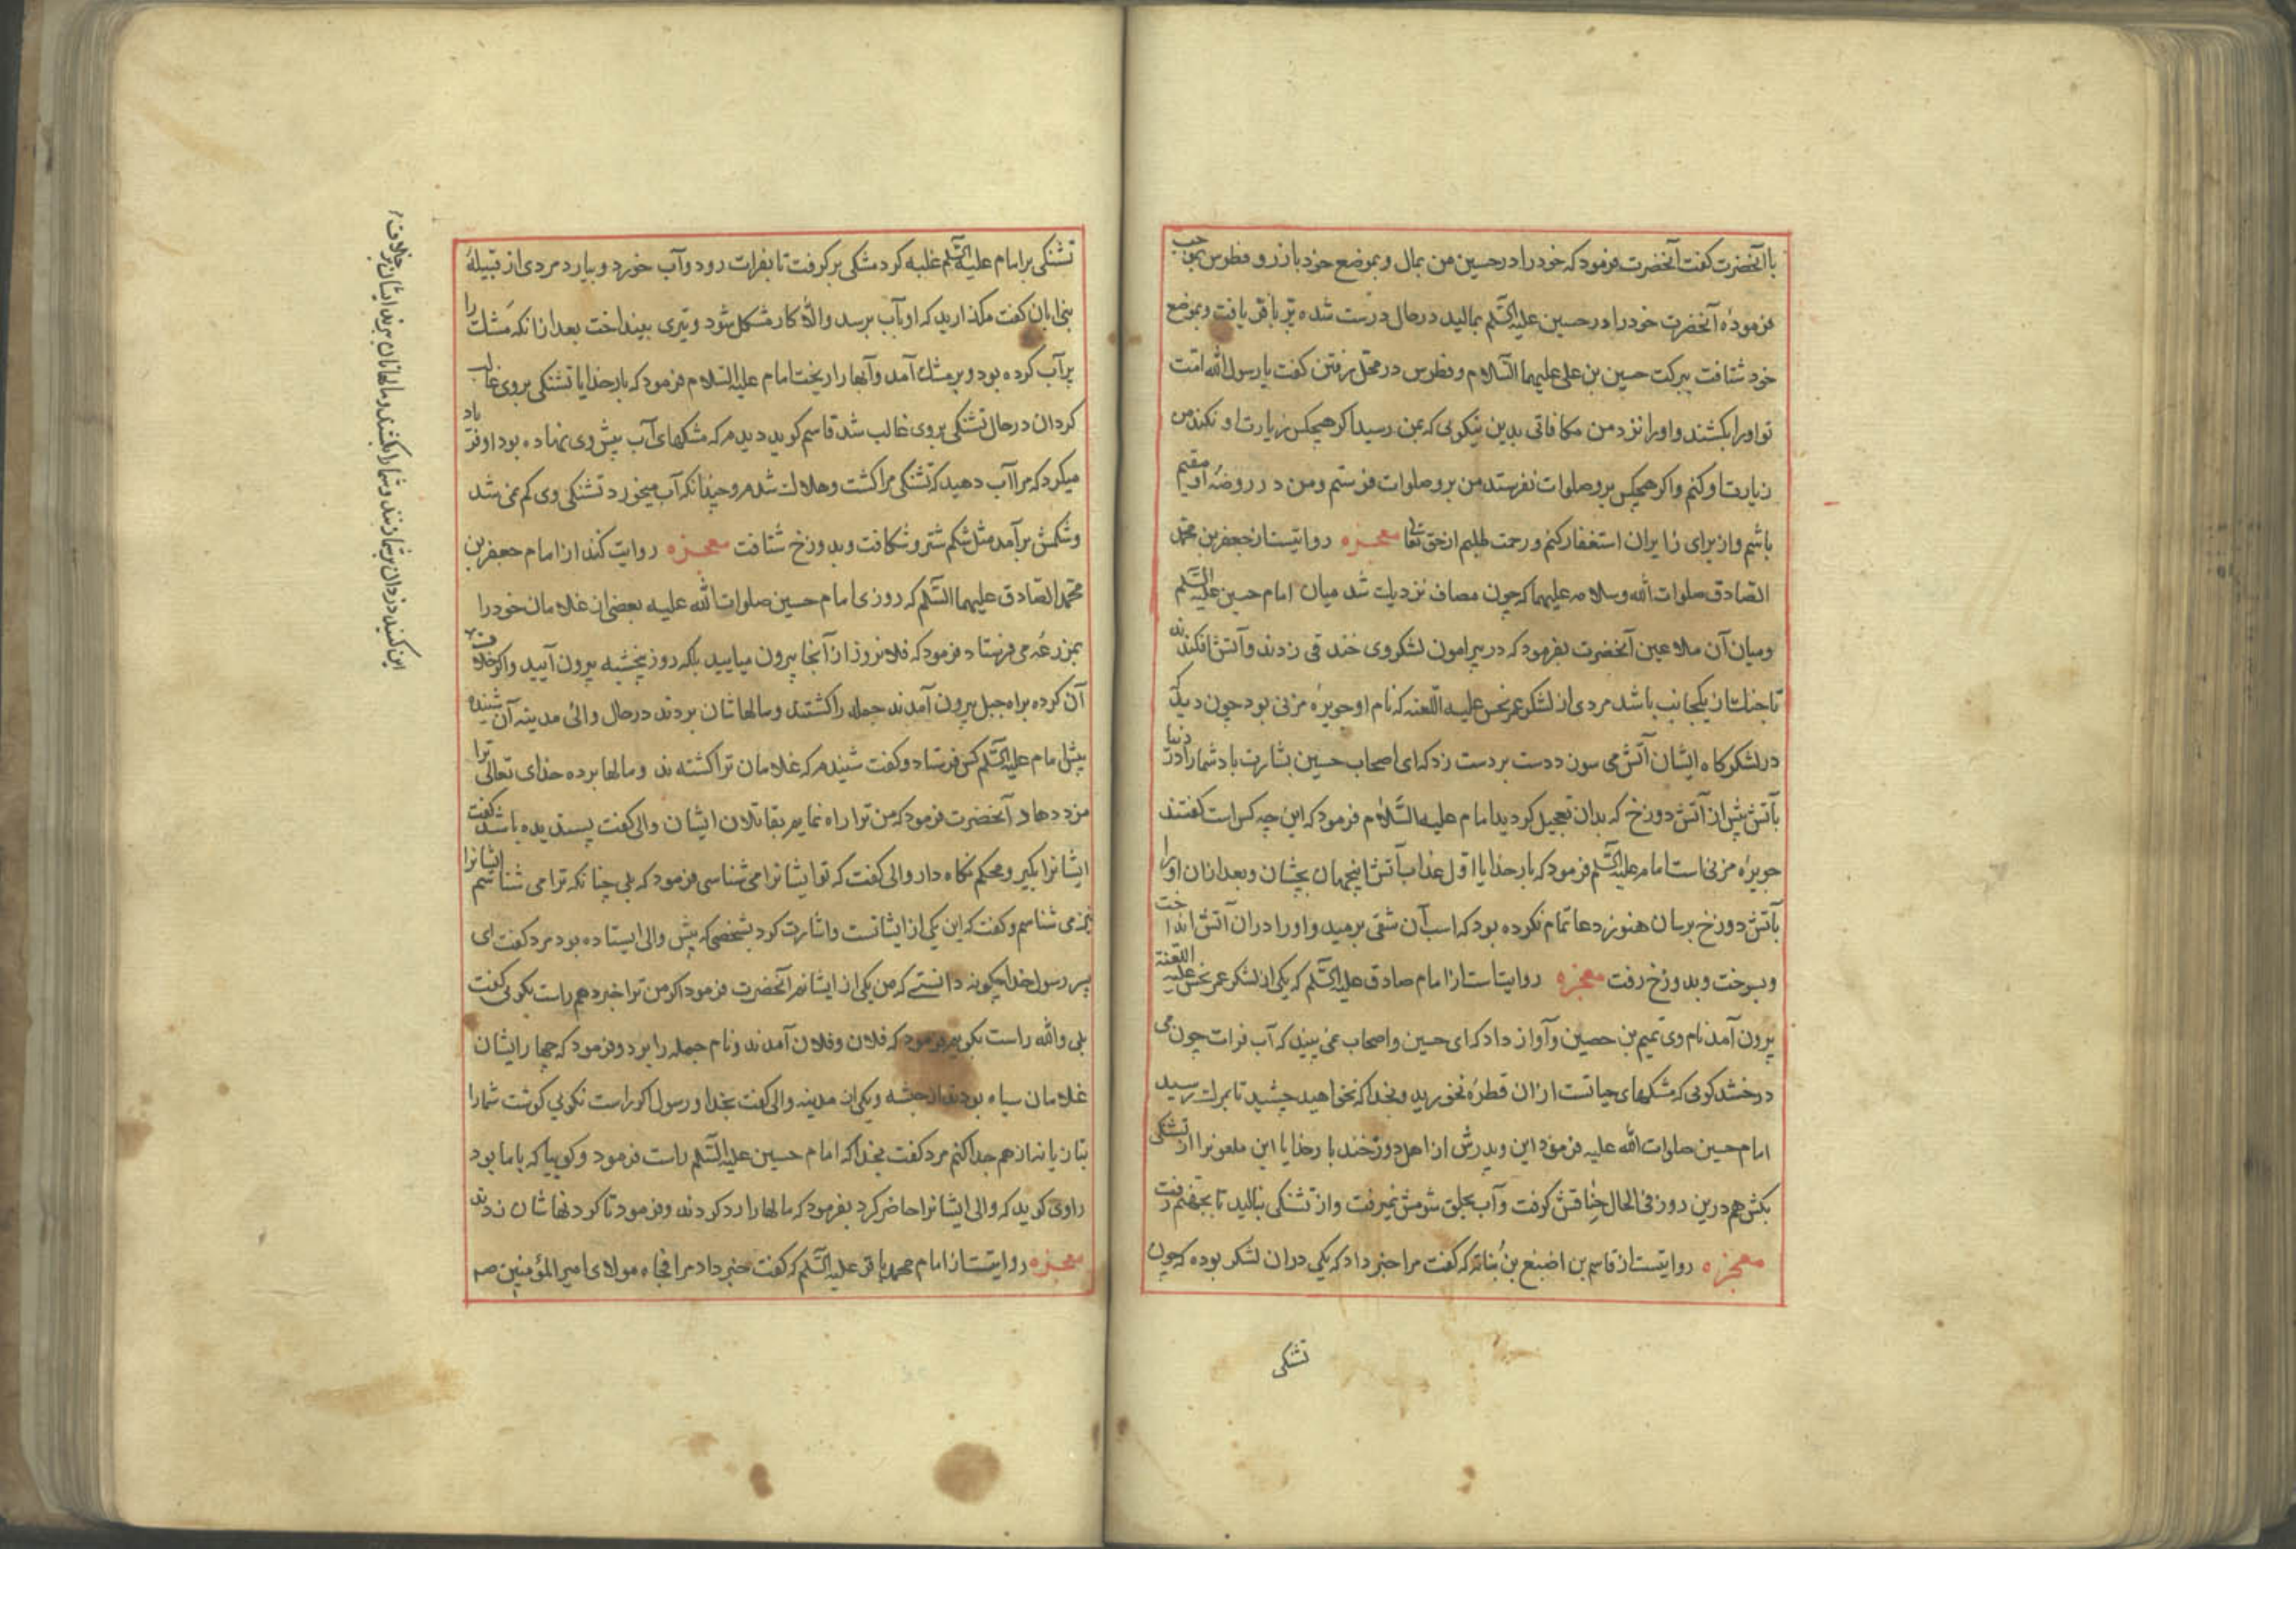 با آنحضرت کفت آنحضرت فرمود که خود را در حسین من بمال و بموضع خود باز رو فطرس بموجب
فرمودهٔ آنحضرت خود را در حسین علیه السّلم بمالید در حال درست شده پر باقی یافت و بموضع
خود شتافت ببرکت حسین بن علی علیهما السّلام و فطرس در محل رفتن کفت یا رسول الله امّت
تو او را بکشند و او را نزد من مکافاتی بدین نیکویی که بمن رسید اکر هیچکس زیارت او نکند من
زیارت او کنم و اکر هیچکس برو صلوات نفرستد من برو صلوات فرستم و من در روضهٔ او مقیم
باشم و از برای زایران استغفار کنم و رحمت طلبم از حق تعا معجزه روایتست از جعفر بن محمّد
الصّادق صلوات الله وسلامه علیهما که چون مصاف نزدیک شد میان امام حسین علیه السّلم
و میان آن ملاعین آنحضرت بفرمود که در پیرامون لشکر وی خندقی زدند و آتش افکندند
تا جنک از یکجانب باشد مردی از لشکر عمر نحس علیه اللّعنه که نام او جویرهٔ مزنی بود چون دید که
در لشکرکاه ایشان آتش می سوزد دست بر دست زد که ای اصحاب حسین بشارت باد شما را در دنیا
بآتش پیش از آتش دوزخ که بدان تعجیل کردید امام علیه السّلام فرمود که این چه کس است کفتند
جویرهٔ مزنی است امام علیه السّلم فرمود که بار خدایا اوّل عذاب آتش اینجهان بچشان و بعد از ان او را
بآتش دوزخ برسان هنوز دعا تمام نکرده بود که اسب آن شقی برمید و او را در ان آتش انداخت
و بسوخت و بدوزخ رفت معجزه روایتست از امام صادق علیه السّلم که یکی از لشکر عمر نحس علیه اللعنة
بیرون آمد نام وی تمیم بن حصین و آواز داد که ای حسین و اصحاب نمی بینید که آب فرات چون می
درخشد کویی که شکمهای حیاتست از ان قطرهٔ نخورید و بخدا که نخواهید چشید تا بمرک رسید
امام حسین صلوات الله علیه فرمود این و پدرش از اهل دوزخند بار خدایا این ملعونرا از تشنکی
بکش هم درین روز فی الحال خناقش کرفت و آب بحلق شومش نمیرفت و از تشنکی بنالید تا بجهنّم رفت
معجزه روایتست از قاسم بن اصبغ بن نُباته که کفت مرا خبر داد که یکی در ان لشکر بوده که چون
تشنکی
تشنکی بر امام علیه السّلم غلبه کرد مشکی برکرفت تا بفرات رود و آب خورد و بیارد مردی از قبیلهٔ
بنی ابان کفت مکذارید که او بآب برسد و الّا کار مشکل شود و تیری بینداخت بعد از انکه مَشک را
پر آب کرده بود و بر مشک آمد و آبها را ریخت امام علیه السّلام فرمود که بار خدایا تشنکی بر وی غالب
کردان در حال تشنکی بر وی غالب شد قاسم کوید دیدم که مشکهای آب پیش وی نهاده بود او فریاد
میکرد که مرا آب دهید که تشنکی مرا کشت و هلاک شدم و چندانکه آب میخورد تشنکی وی کم نمی شد
و شکمش برآمد مثل شکم شتر و شکافت و بدوزخ شتافت معجزه روایت کنند از امام جعفر بن
محمّد الصّادق علیهما السّلم که روزی امام حسین صلوات الله علیه بعضی از غلامان خود را
بمزرعهٔ می فرستاد فرمود که فلان روز از آنجا بیرون میایید بلکه روز پنجشنبه بیرون آیید و اکر خلاف
آن کرده براه جبل بیرون آمدند جمله را کشتند و مالهاشان بردند در حال والئ مدینه آن شنیده
پیش امام علیه السّلم کس فرستاد و کفت شنیدم که غلامان ترا کشته اند و مالها برده خدای تعالی ترا
مزد دهاد آنحضرت فرمود که من ترا راه نمایم بقاتلان ایشان والی کفت پسندیده باشد کفت
ایشانرا بکیر و محکم نکاه دار والی کفت که تو ایشانرا می شناسی فرمود که بلی چنانکه ترا می شناسم ایشانرا
نیز می شناسم و کفت که این یکی از ایشانست و اشارت کرد بشخصی که پیش والی ایستاده بود مرد کفت ای
پسر رسول خدا چکونه دانستی که من یکی از ایشانم آنحضرت فرمود اکر من ترا خبر دهم راست بکویی کفت
بلی والله راست بکویم فرمود که فلان و فلان آمدند و نام جمله را برد و فرمود که چهار ایشان
غلامان سیاه بودند از حبشه و یکی از مدینه والی کفت بخدا و رسول اکر راست نکویی کوشت شما را
بتازیانه از هم جدا کنم مرد کفت بخدا که امام حسین علیه السّلم راست فرمود و کوییا که با ما بود
راوی کوید که والی ایشانرا حاضر کرد بفرمود که مالها را رد کردند و فرمود تا کردنهاشان زدند
معجزه روایتست از امام محمد باقر علیه السّلم که کفت خبر داد مرا مولای امیر المؤمنین
این کنید دزدان بر شما زنند و شما را بکشند و مالهاتان ببرند ایشان بر خلاف